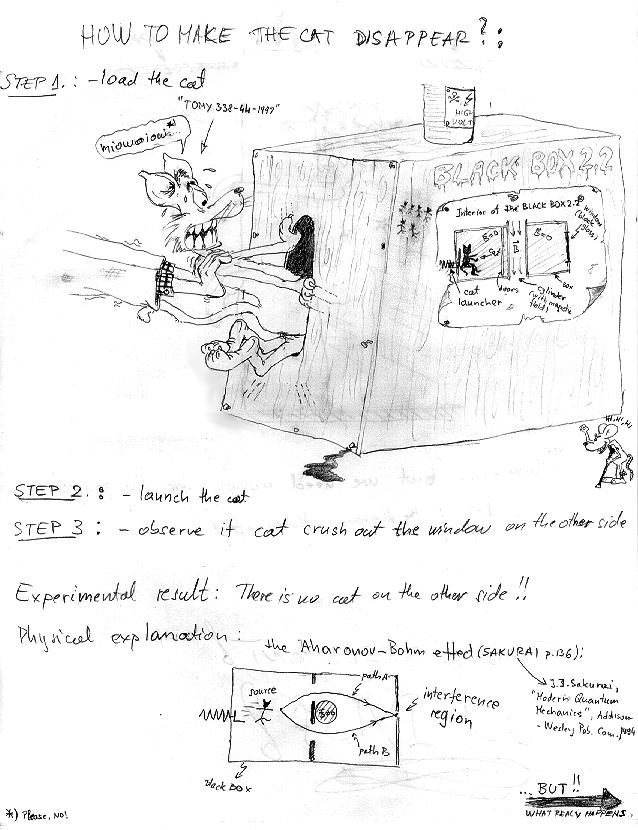 HOW TO MAKE THE CAT DISAPPEAR?:
STEP 1.: - load the cat
"TOMY 338-44-1997"
miowoiow...*
HIGH
VOLT
BLACK BOX 2.2
Interior of the BLACK BOX 2.2
window
(black
glass)
B=0
B=0
cat
cat
launcher
doors
cylinder
(with magnetic
field)
box
Hi, Hi, Hi
STEP 2.: - launch the cat
STEP 3: - observe if cat crush out the window on the other side
Experimental result: There is no cat on the other side!!
Physical explanation: the Aharonov-Bohm effect (SAKURAI p.136):
J.J. Sakurai,
"Modern Quantum
Mechanics", Addison
- Wesley Pub. Com., 1994
source
path A
path B
interference
region
black box
... BUT!!
WHAT REALY HAPPENS...
*) Please, NO!